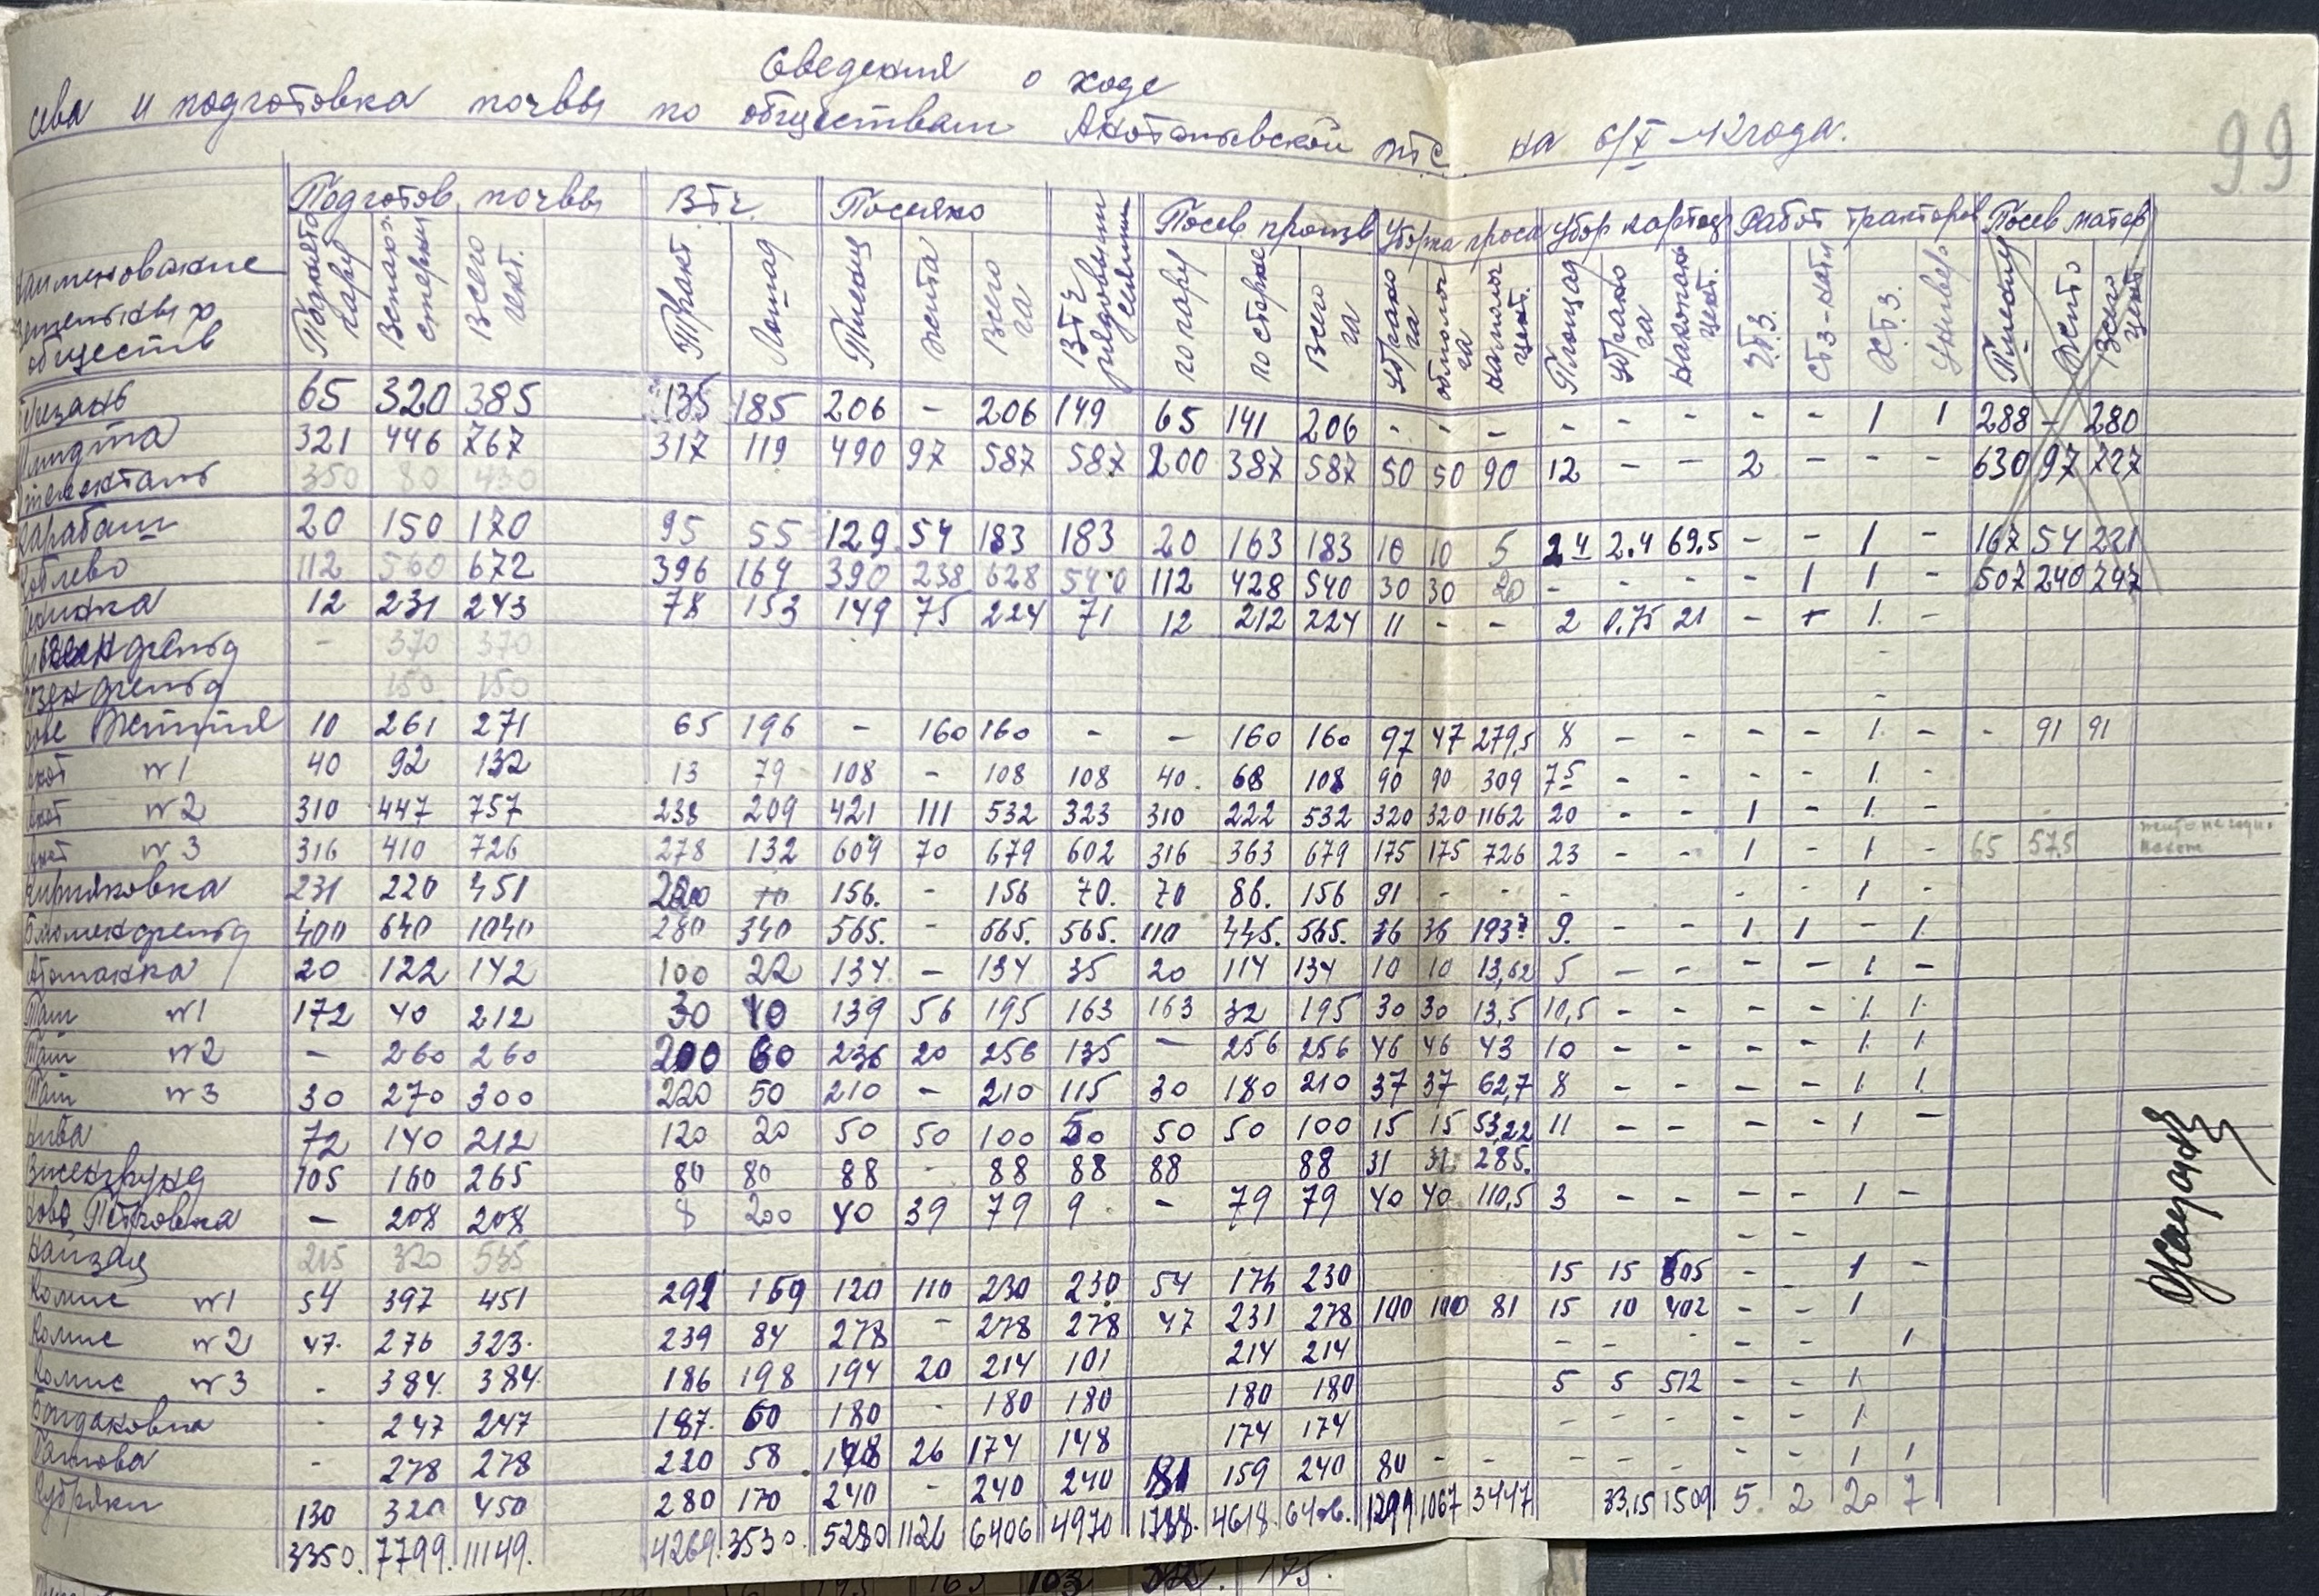 Сведения о ходе
сева и подготовка почвы по обществам Акотаньевской мтс на 6/X-42 года.
99
Подготов. почвы В т.ч. Посеяно Посев произв Уборка проса Убор картоф Работ тракторов Посев матер
Наименование земельных обществ
Поднято пару Вспахан стерни Всего гект. Тракт. Лошад Пшениц жита Всего га В т.ч. рядовыми сеялками по пару по стерне Всего га Убрано га обмолоч га намолоч цент. Площад Убрано га накопано цент. ЧТЗ. СТЗ-нати ХТЗ. Универс Пшениц Жито Всего цент
65 320 385 135 185 206 - 206 149 65 141 206 - - - - - - - - 1 1 288 - 280
321 446 767 317 119 490 97 587 587 200 387 587 50 50 90 12 - - 2 - - - 630 97 727
350 80 430
Карабаш 20 150 170 95 55 129 54 183 183 20 163 183 10 10 5 2.4 2.4 69.5 - - 1 - 167 54 221
Коблево 112 560 672 396 164 390 238 628 540 112 428 540 30 30 20 - - - - 1 1 - 507 240 247
12 231 243 78 153 149 75 224 71 12 212 224 11 - - 2 0.75 21 - + 1. -
- 370 370
150 150
10 261 271 65 196 - 160 160 - - 160 160 97 47 279,5 8 - - - - 1. - - 91 91
N1 40 92 132 13 79 108 - 108 108 40. 68 108 90 90 309 7.5 - - - - 1. -
N2 310 447 757 238 209 421 111 532 323 310 222 532 320 320 1162 20 - - 1 - 1. -
N3 316 410 726 278 132 609 70 679 602 316 363 679 175 175 726 23 - - 1 - 1 - 65 57,5 жито не годн.
Кирияковка 231 220 451 220 70 156. - 156 70. 70 86. 156 91 - - - - - 1 -
400 640 1040 280 340 565. - 565. 565. 110 445. 565. 36 36 193.7 9. - - 1. 1 - 1.
Атаманка 20 122 142 100 22 134 - 134 35 20 114 134 10 10 13,62 5 - - - - 1 -
Таш N1 172 40 212 30 40 139 56 195 163 163 32 195 30 30 13,5 10,5 - - - - 1. 1.
Таш N2 - 260 260 200 60 236 20 256 135 - 256 256 46 46 43 10 - - - - 1. 1.
Таш N3 30 270 300 220 50 210 - 210 115 30 180 210 37 37 62,7 8 - - - - 1. 1.
Нива 72 140 212 120 20 50 50 100 50 50 50 100 15 15 53,22 11 - - - - 1 -
Визенгрунд 105 160 265 80 80 88 - 88 88 88 88 31 31 285.
Ново Петровка - 208 208 8 200 40 39 79 9 - 79 79 40 40 110,5 3 - - - - 1 -
Найзац 215 320 535 - -
Колис N1 54 397 451 292 159 120 110 230 230 54 176 230 15 15 605 - - 1 -
Колис N2 47. 276 323. 239 84 278 - 278 278 47 231 278 100 100 81 15 10 402 - - 1
Колис N3 - 384. 384. 186 198 194 20 214 101 214 214 - - - - - 1
Бондаковка - 247 247 187. 60 180 - 180 180 180 180 5 5 512 - - 1.
- 278 278 220 58 148 26 174 148 174 174 - - - - - 1.
Кубряки 130 320 450 280 170 240 - 240 240 81 159 240 80 - - - - - - - 1 1
3350. 7799. 11149. 4269. 3530. 5280 1126 6406 4970 1788. 4618. 6406. 1299 1067 3447 33,15 1509 5. 2 20 7
103 175.